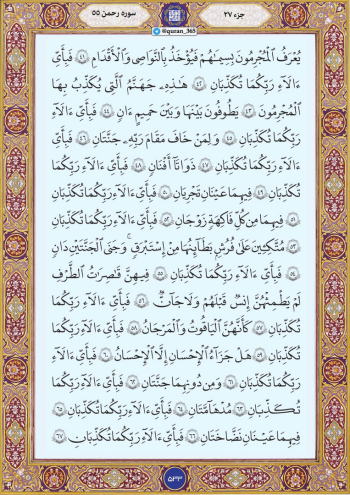 جزء ۲۷
سوره رحمن ۵۵
@quran_365
يُعْرَفُ ٱلْمُجْرِمُونَ بِسِيمَٰهُمْ فَيُؤْخَذُ بِٱلنَّوَٰصِى وَٱلْأَقْدَامِ ﴿٤١﴾ فَبِأَىِّ
ءَالَآءِ رَبِّكُمَا تُكَذِّبَانِ ﴿٤٢﴾ هَٰذِهِۦ جَهَنَّمُ ٱلَّتِى يُكَذِّبُ بِهَا
ٱلْمُجْرِمُونَ ﴿٤٣﴾ يَطُوفُونَ بَيْنَهَا وَبَيْنَ حَمِيمٍ ءَانٍ ﴿٤٤﴾ فَبِأَىِّ ءَالَآءِ
رَبِّكُمَا تُكَذِّبَانِ ﴿٤٥﴾ وَلِمَنْ خَافَ مَقَامَ رَبِّهِۦ جَنَّتَانِ ﴿٤٦﴾ فَبِأَىِّ
ءَالَآءِ رَبِّكُمَا تُكَذِّبَانِ ﴿٤٧﴾ ذَوَاتَآ أَفْنَانٍ ﴿٤٨﴾ فَبِأَىِّ ءَالَآءِ رَبِّكُمَا
تُكَذِّبَانِ ﴿٤٩﴾ فِيهِمَا عَيْنَانِ تَجْرِيَانِ ﴿٥٠﴾ فَبِأَىِّ ءَالَآءِ رَبِّكُمَا تُكَذِّبَانِ
﴿٥١﴾ فِيهِمَا مِن كُلِّ فَٰكِهَةٍ زَوْجَانِ ﴿٥٢﴾ فَبِأَىِّ ءَالَآءِ رَبِّكُمَا تُكَذِّبَانِ
﴿٥٣﴾ مُتَّكِـِٔينَ عَلَىٰ فُرُشٍۭ بَطَآئِنُهَا مِنْ إِسْتَبْرَقٍ ۚ وَجَنَى ٱلْجَنَّتَيْنِ دَانٍ
﴿٥٤﴾ فَبِأَىِّ ءَالَآءِ رَبِّكُمَا تُكَذِّبَانِ ﴿٥٥﴾ فِيهِنَّ قَٰصِرَٰتُ ٱلطَّرْفِ
لَمْ يَطْمِثْهُنَّ إِنسٌ قَبْلَهُمْ وَلَا جَآنٌّ ﴿٥٦﴾ فَبِأَىِّ ءَالَآءِ رَبِّكُمَا
تُكَذِّبَانِ ﴿٥٧﴾ كَأَنَّهُنَّ ٱلْيَاقُوتُ وَٱلْمَرْجَانُ ﴿٥٨﴾ فَبِأَىِّ ءَالَآءِ رَبِّكُمَا
تُكَذِّبَانِ ﴿٥٩﴾ هَلْ جَزَآءُ ٱلْإِحْسَٰنِ إِلَّا ٱلْإِحْسَٰنُ ﴿٦٠﴾ فَبِأَىِّ ءَالَآءِ
رَبِّكُمَا تُكَذِّبَانِ ﴿٦١﴾ وَمِن دُونِهِمَا جَنَّتَانِ ﴿٦٢﴾ فَبِأَىِّ ءَالَآءِ رَبِّكُمَا
تُكَذِّبَانِ ﴿٦٣﴾ مُدْهَآمَّتَانِ ﴿٦٤﴾ فَبِأَىِّ ءَالَآءِ رَبِّكُمَا تُكَذِّبَانِ ﴿٦٥﴾
فِيهِمَا عَيْنَانِ نَضَّاخَتَانِ ﴿٦٦﴾ فَبِأَىِّ ءَالَآءِ رَبِّكُمَا تُكَذِّبَانِ ﴿٦٧﴾
۵۳۳